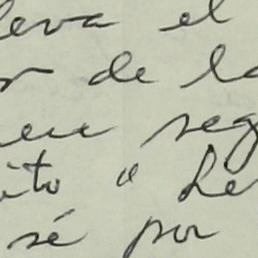 leva el
r de la
en seg
ito " Le
sé por